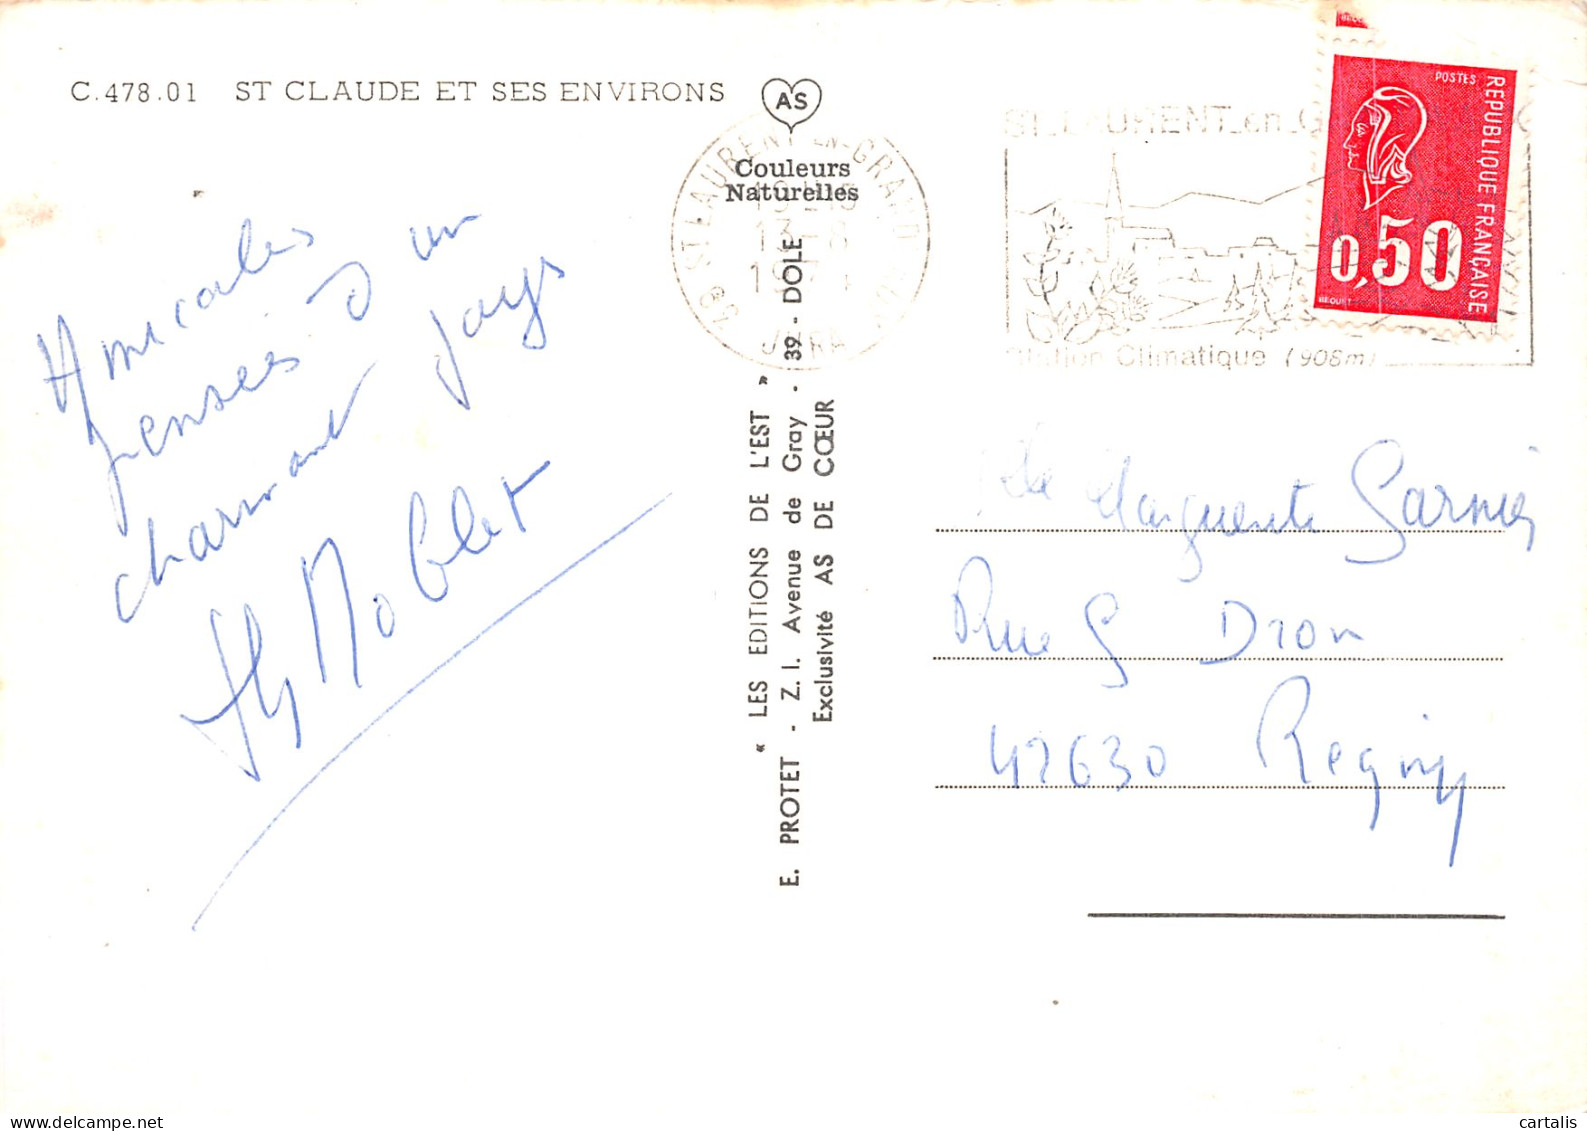 C.478.01 ST CLAUDE ET SES ENVIRONS
AS
Couleurs
Naturelles
Amicales
pensées d'un
charmant pays
Noblet
« LES EDITIONS DE L'EST »
E. PROTET - Z. I. Avenue de Gray - 39 - DOLE
Exclusivité AS DE CŒUR
ST LAURENT EN GRANDVAUX
13-8
JURA
ST LAURENT en G
Station Climatique (908m)
POSTES
REPUBLIQUE FRANÇAISE
0,50
BEQUET
Marguerite Garnier
Rue G Dron
42630 Regny
cartalis